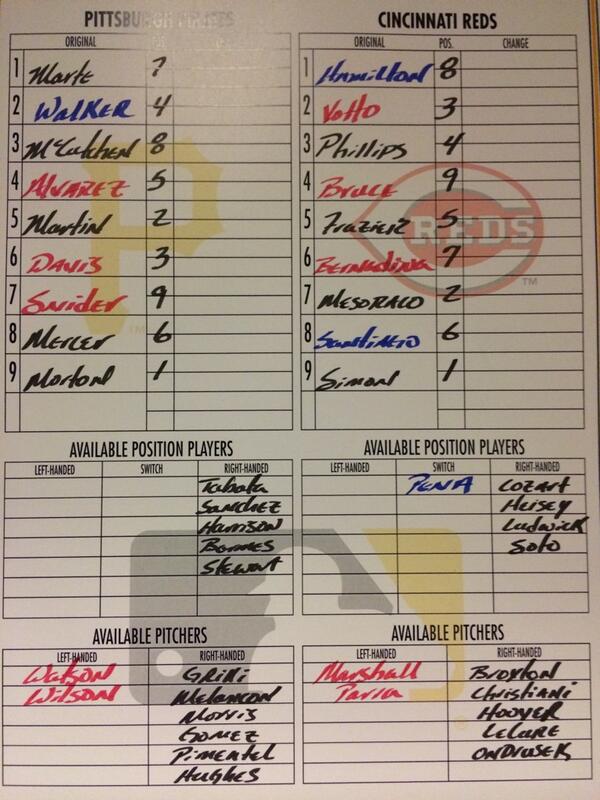 PITTSBURGH PIRATES
ORIGINAL
1 Marte 7
2 Walker 4
3 McCutchen 8
4 Alvarez 5
5 Martin 2
6 Davis 3
7 Snider 9
8 Mercer 6
9 Morton 1
CINCINNATI REDS
ORIGINAL POS. CHANGE
1 Hamilton 8
2 Votto 3
3 Phillips 4
4 Bruce 9
5 Frazier 5
6 Bernadina 7
7 Mesoraco 2
8 Santiago 6
9 Simon 1
P
TM
REDS
TM
AVAILABLE POSITION PLAYERS
LEFT-HANDED SWITCH RIGHT-HANDED
Tabata
Sanchez
Harrison
Barnes
Stewart
AVAILABLE POSITION PLAYERS
LEFT-HANDED SWITCH RIGHT-HANDED
Pena Cozart
Heisey
Ludwick
Soto
AVAILABLE PITCHERS
LEFT-HANDED RIGHT-HANDED
Watson Grilli
Wilson Melancon
Morris
Gomez
Pimentel
Hughes
AVAILABLE PITCHERS
LEFT-HANDED RIGHT-HANDED
Marshall Broxton
Parra Christiani
Hoover
LeCure
Ondrusek